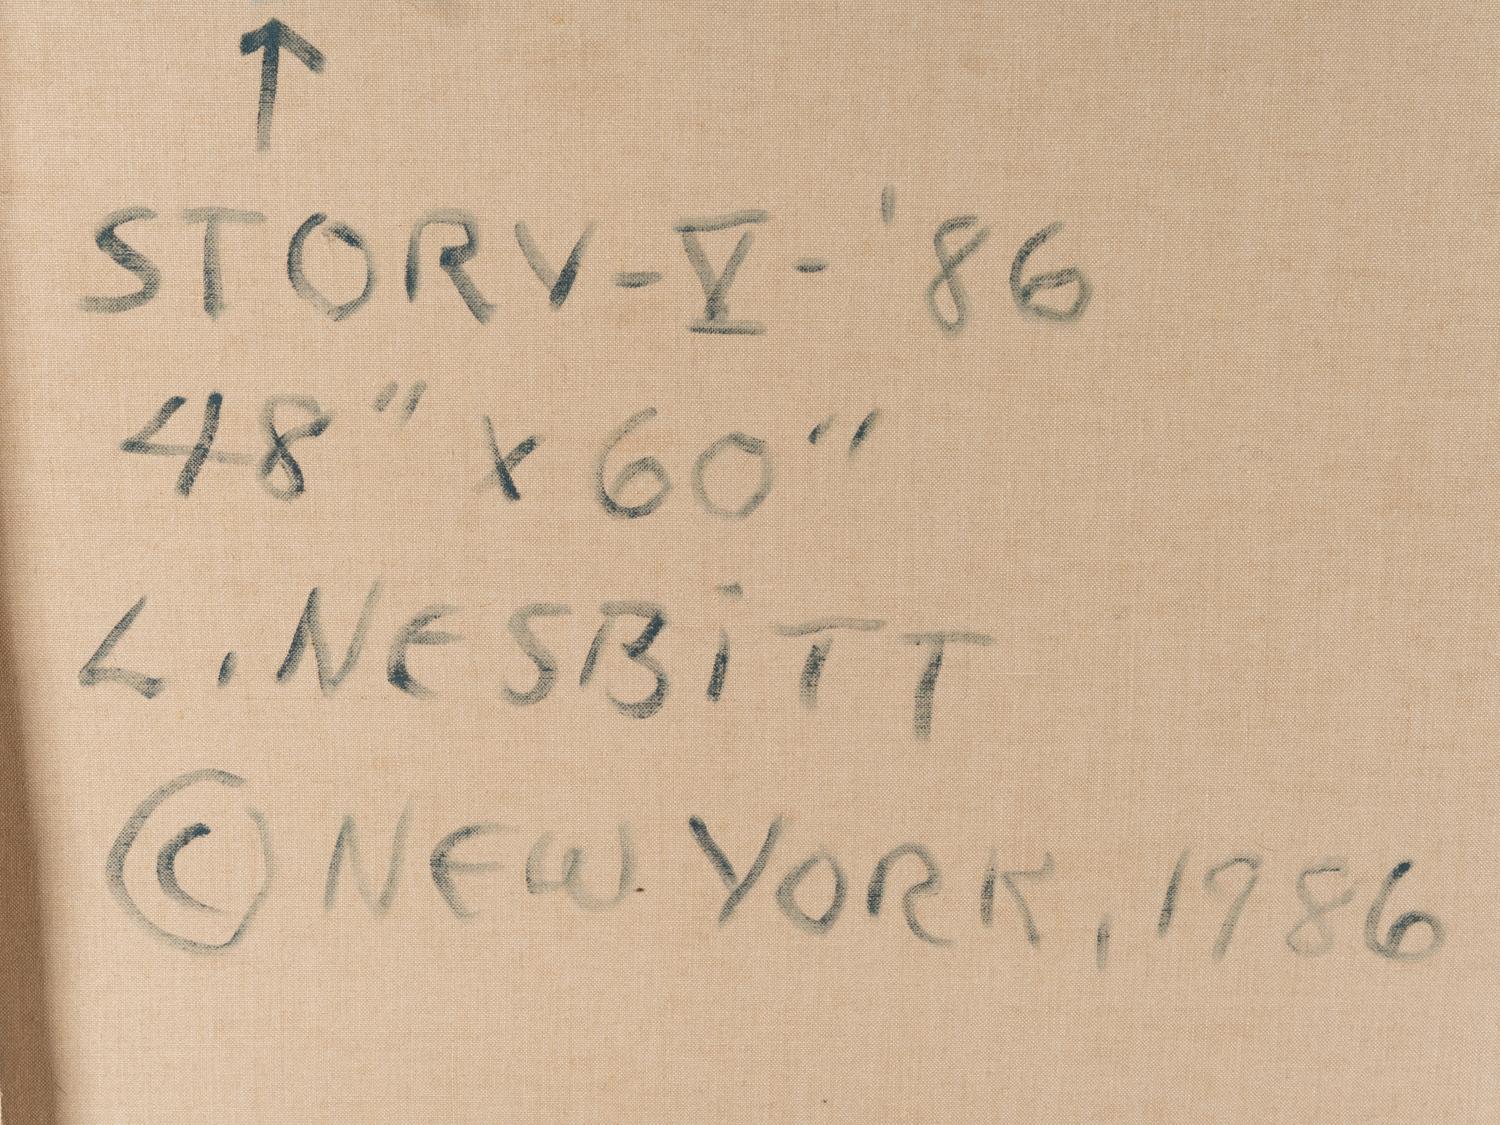 ↑
STORY-V-'86
48" x 60"
L. NESBiTT
© NEW YORK, 1986